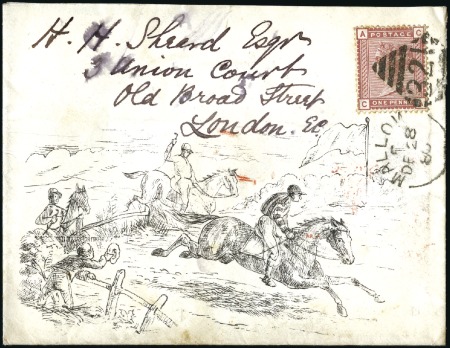 H. H. Sheard Esqr
3 Union Court
Old Broad Street
London. EC
A POSTAGE C
C ONE PENNY A
MALLOW
DE 28
80